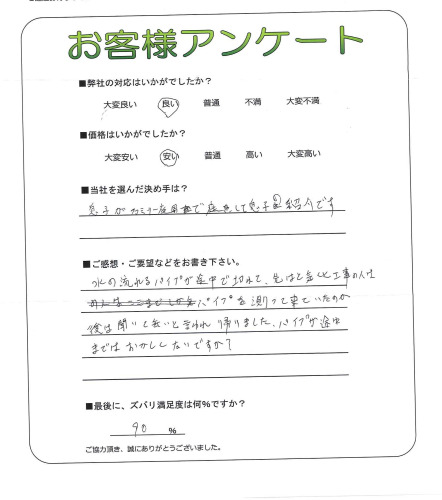 お客様アンケート
■弊社の対応はいかがでしたか？
大変良い 良い 普通 不満 大変不満
■価格はいかがでしたか？
大変安い 安い 普通 高い 大変高い
■当社を選んだ決め手は？
息子が して息子の紹介です
■ご感想・ご要望などをお書き下さい。
水の流れるパイプが途中で切れて、先はと 工事の人は
パイプを測って来ていたのか
後は聞いて無いと言われ帰りました。パイプが途中
まではおかしくないですか？
■最後に、ズバリ満足度は何%ですか？
90 %
ご協力頂き、誠にありがとうございました。